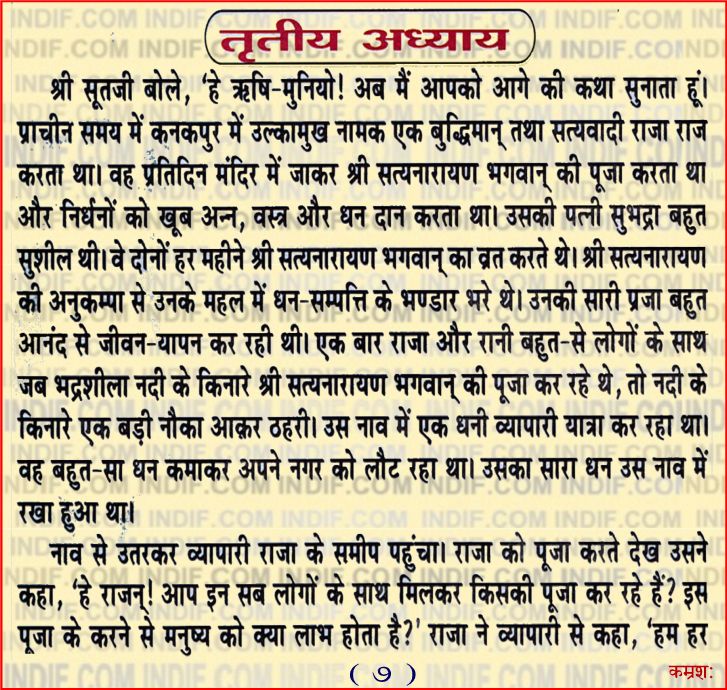 तृतीय अध्याय
श्री सूतजी बोले, 'हे ऋषि-मुनियो! अब मैं आपको आगे की कथा सुनाता हूं।
प्राचीन समय में कनकपुर में उल्कामुख नामक एक बुद्धिमान् तथा सत्यवादी राजा राज
करता था। वह प्रतिदिन मंदिर में जाकर श्री सत्यनारायण भगवान् की पूजा करता था
और निर्धनों को खूब अन्न, वस्त्र और धन दान करता था। उसकी पत्नी सुभद्रा बहुत
सुशील थी। वे दोनों हर महीने श्री सत्यनारायण भगवान् का व्रत करते थे। श्री सत्यनारायण
की अनुकम्पा से उनके महल में धन-सम्पत्ति के भण्डार भरे थे। उनकी सारी प्रजा बहुत
आनंद से जीवन-यापन कर रही थी। एक बार राजा और रानी बहुत-से लोगों के साथ
जब भद्रशीला नदी के किनारे श्री सत्यनारायण भगवान् की पूजा कर रहे थे, तो नदी के
किनारे एक बड़ी नौका आकर ठहरी। उस नाव में एक धनी व्यापारी यात्रा कर रहा था।
वह बहुत-सा धन कमाकर अपने नगर को लौट रहा था। उसका सारा धन उस नाव में
रखा हुआ था।
नाव से उतरकर व्यापारी राजा के समीप पहुंचा। राजा को पूजा करते देख उसने
कहा, 'हे राजन्! आप इन सब लोगों के साथ मिलकर किसकी पूजा कर रहे हैं? इस
पूजा के करने से मनुष्य को क्या लाभ होता है?' राजा ने व्यापारी से कहा, 'हम हर
( ७ )
कम्रश:
INDIF.COM